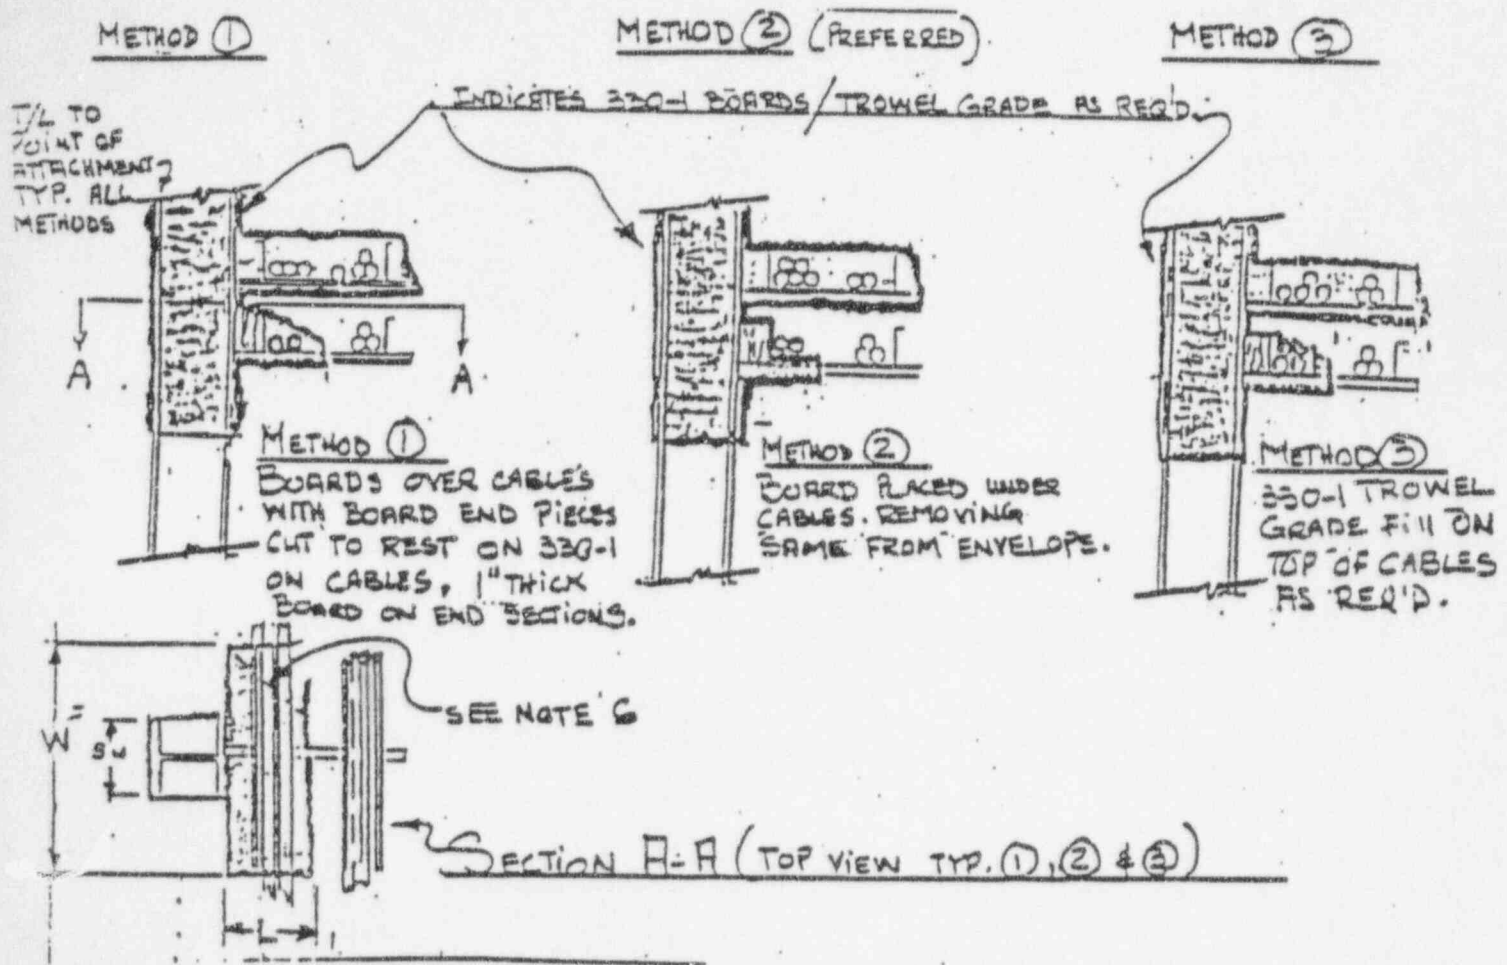 METHOD ①
METHOD ② (PREFERRED)
METHOD ③
INDICATES 330-1 BOARDS/TROWEL GRADE AS REQ'D.
T/L TO
POINT OF
ATTACHMENT
TYP. ALL
METHODS
A A
METHOD ①
BOARDS OVER CABLES
WITH BOARD END PIECES
CUT TO REST ON 330-1
ON CABLES, 1" THICK
BOARD ON END SECTIONS.
METHOD ②
BOARD PLACED UNDER
CABLES. REMOVING
SAME FROM ENVELOPE.
METHOD ③
330-1 TROWEL
GRADE FILL ON
TOP OF CABLES
AS REQ'D.
SEE NOTE 6
W
L
SECTION A-A (TOP VIEW TYP. ①, ② & ③)